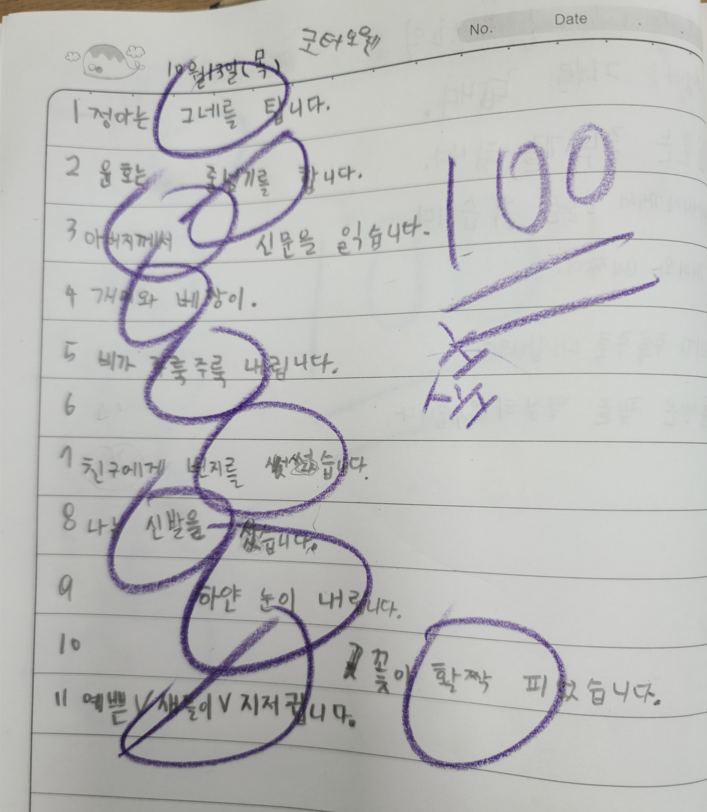 No.
Date
10월13일(목)
1 정아는 그네를 탑니다.
2 윤호는 줄넘기를 합니다.
3 아버지께서 신문을 읽습니다.
4 개미와 베짱이.
5 비가 주룩주룩 내립니다.
6
7 친구에게 편지를 썼습니다.
8 나는 신발을 신습니다.
9 하얀 눈이 내립니다.
10 꽃이 활짝 피었습니다.
11 예쁜 V 새들이 V 지저귑니다.
100